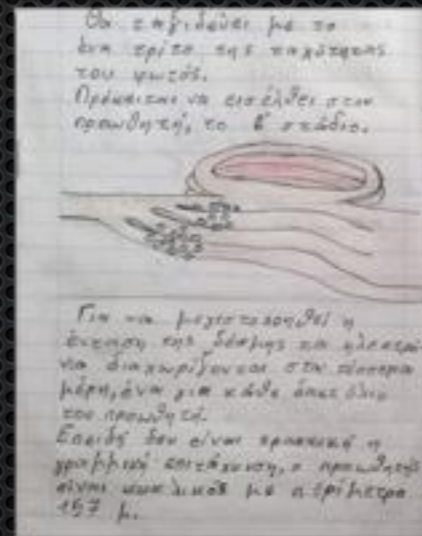 Θα ταξιδεύει με το
ένα τρίτο της ταχύτητας
του φωτός.
Πρόκειται να εισέλθει στον
προωθητή, το β' στάδιο.
Για να μεγιστοποιηθεί η
ένταση της δέσμης τα
να διαχωρίζονται στα τέσσερα
μέρη, ένα για κάθε δακτύλιο
του προωθητή.
Επειδή δεν είναι πρακτική η
γραμμική επιτάχυνση, ο προωθητής
είναι κυκλικός με περίμετρο
157 μ.